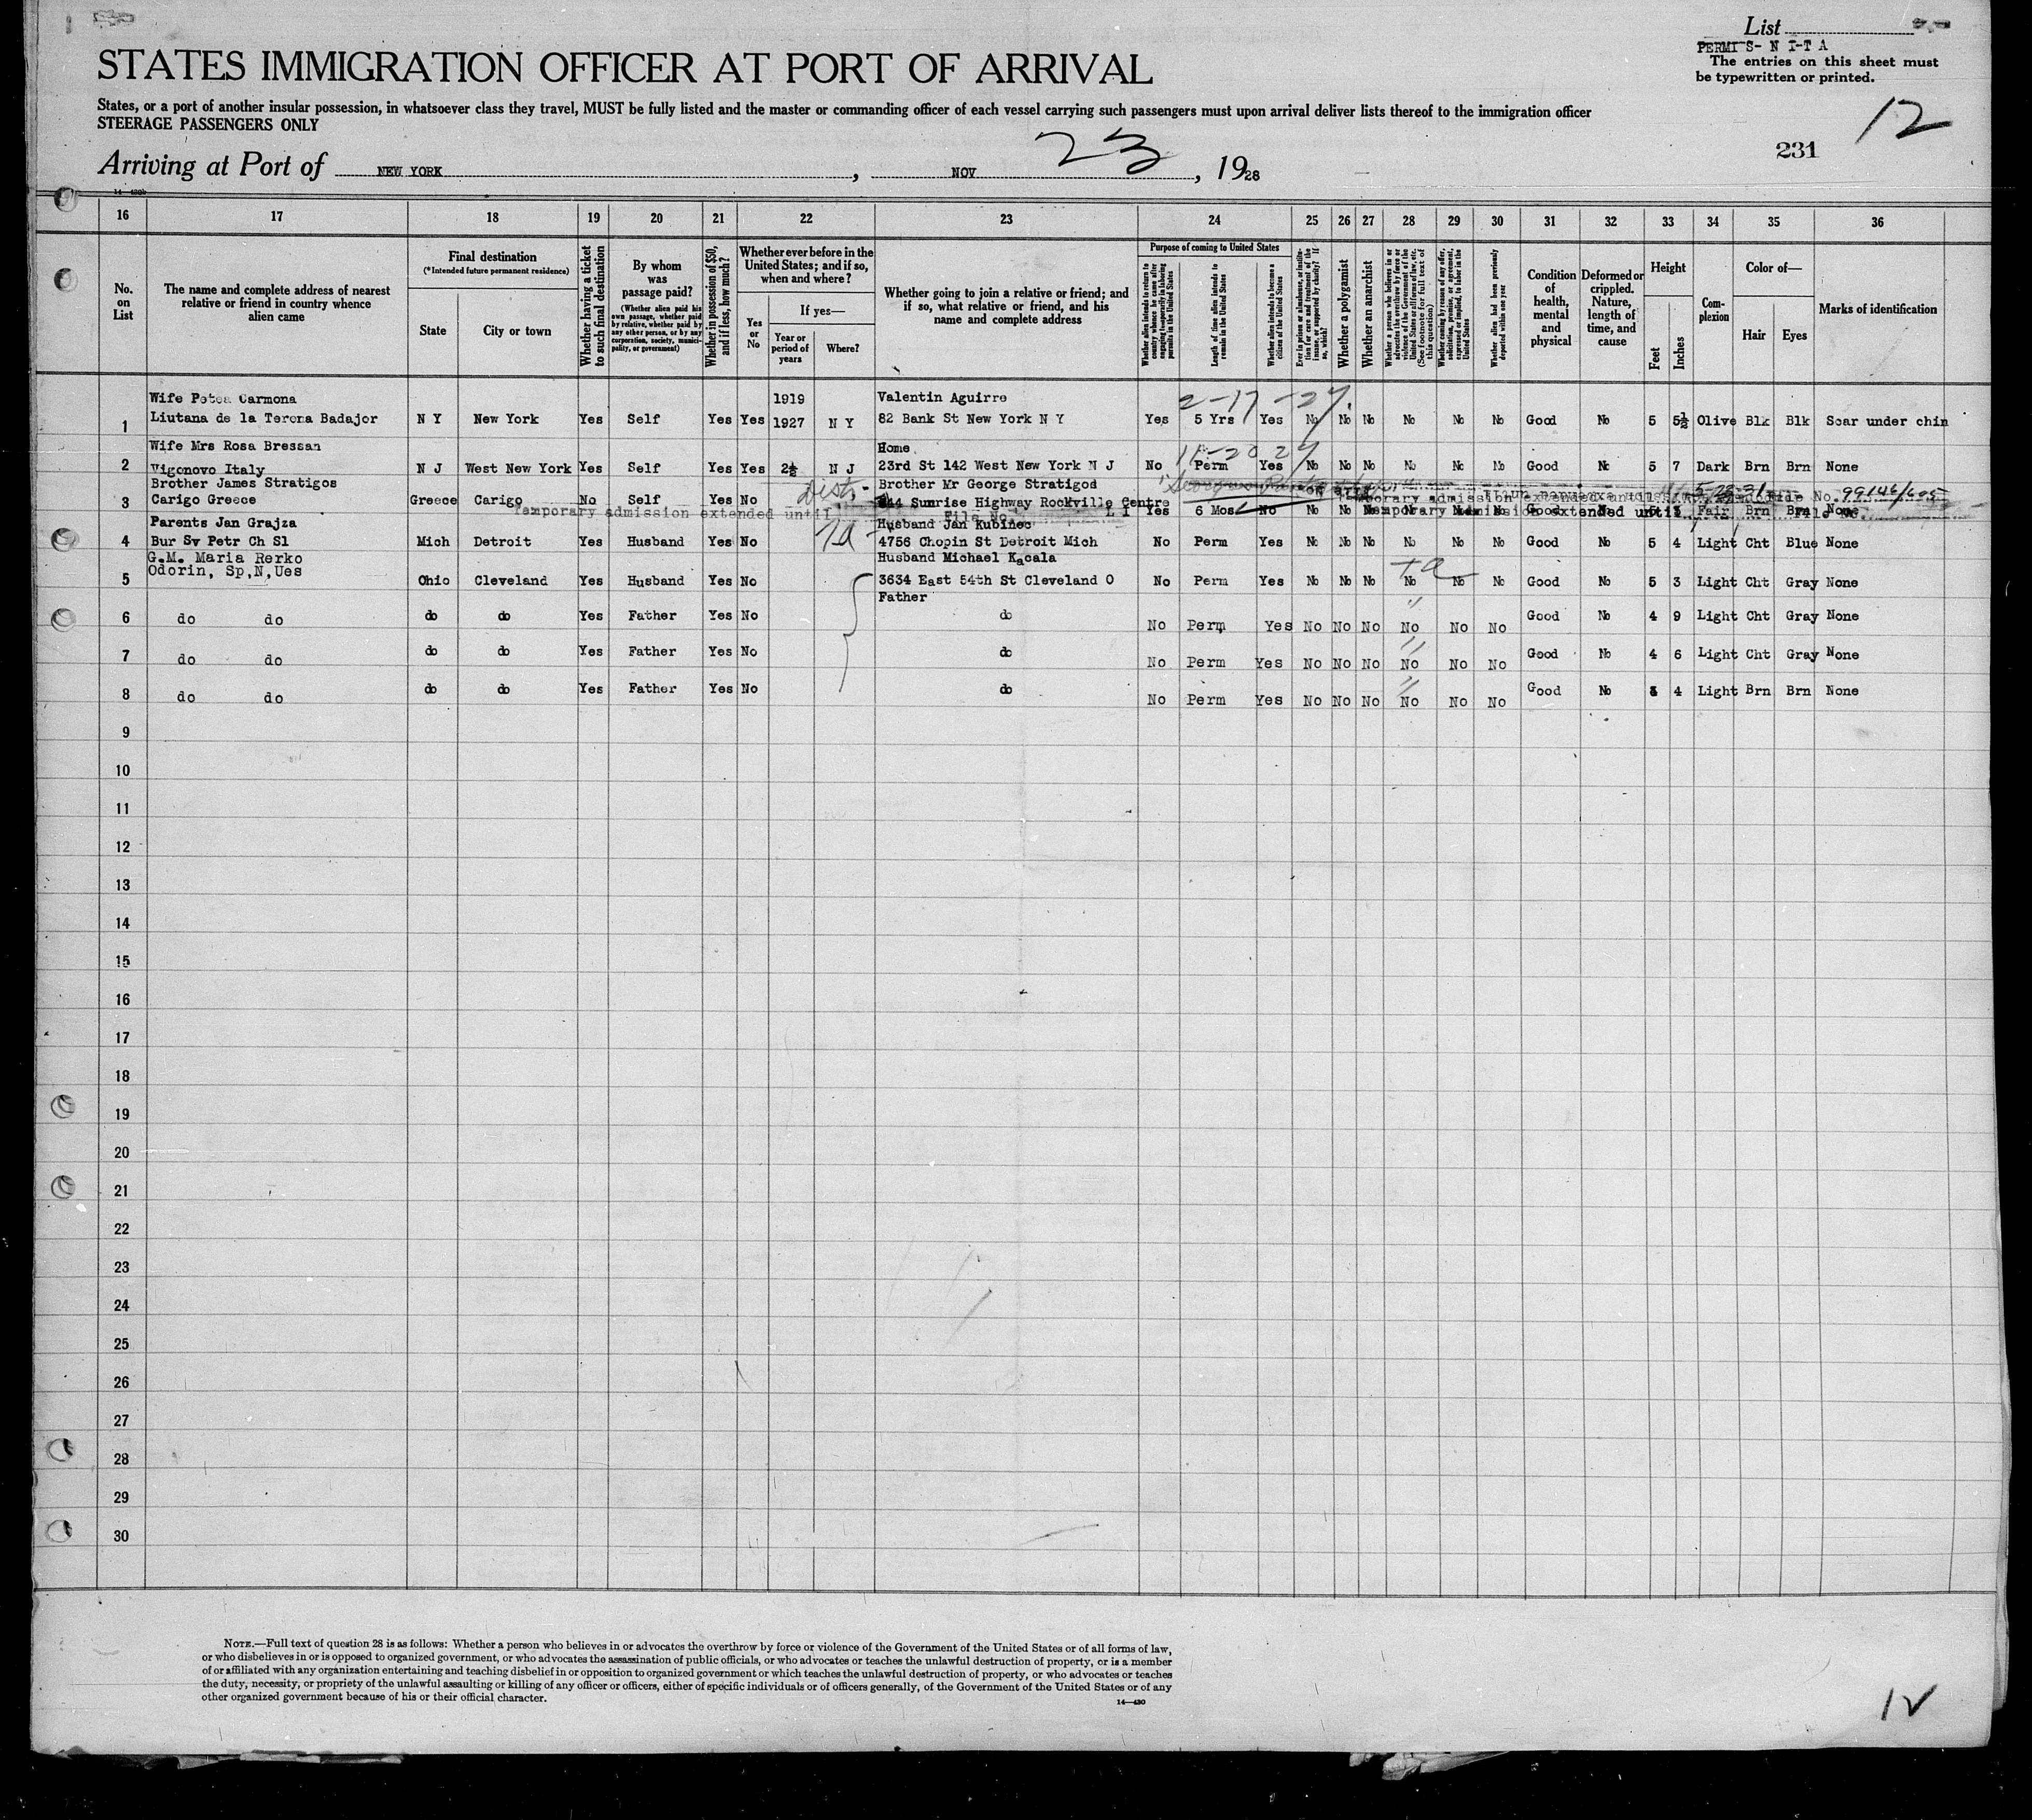 List
PERMITS- N I-T A
The entries on this sheet must
be typewritten or printed.
STATES IMMIGRATION OFFICER AT PORT OF ARRIVAL
States, or a port of another insular possession, in whatsoever class they travel, MUST be fully listed and the master or commanding officer of each vessel carrying such passengers must upon arrival deliver lists thereof to the immigration officer
STEERAGE PASSENGERS ONLY
12
231
Arriving at Port of NEW YORK, NOV 23, 1928
16 17 18 19 20 21 22 23 24 25 26 27 28 29 30 31 32 33 34 35 36
No. on List
The name and complete address of nearest relative or friend in country whence alien came
Final destination
(*Intended future permanent residence)
State
City or town
Whether having a ticket to such final destination
By whom was passage paid?
(Whether alien paid his own passage, whether paid by relative, whether paid by any other person, or by any corporation, society, municipality, or government)
Whether in possession of $50, and if less, how much?
Whether ever before in the United States; and if so, when and where?
Yes or No
If yes—
Year or period of years
Where?
Whether going to join a relative or friend; and if so, what relative or friend, and his name and complete address
Purpose of coming to United States
Whether alien intends to return to country whence he came after engaging temporarily in laboring pursuits in the United States
Length of time alien intends to remain in the United States
Whether alien intends to become a citizen of the United States
Ever in prison or almshouse, or institution for care and treatment of the insane, or supported by charity? If so, which?
Whether a polygamist
Whether an anarchist
Whether a person who believes in or advocates the overthrow by force or violence of the Government of the United States or all forms of law, etc. (See footnote for full text of this question)
Whether coming by reason of any offer, solicitation, promise, or agreement, expressed or implied, to labor in the United States
Whether alien had been previously deported within one year
Condition of health, mental and physical
Deformed or crippled. Nature, length of time, and cause
Height
Feet
Inches
Complexion
Color of—
Hair
Eyes
Marks of identification
Wife Petea Carmona 1919 Valentin Aguirre 2-17-27.
1 Liutana de la Terona Badajor N Y New York Yes Self Yes Yes 1927 N Y 82 Bank St New York N Y Yes 5 Yrs Yes No No No No No No Good No 5 5½ Olive Blk Blk Scar under chin
Wife Mrs Rosa Bressan Home
2 Vigonovo Italy N J West New York Yes Self Yes Yes 2½ N J 23rd St 142 West New York N J No Perm Yes No No No No No No Good No 5 7 Dark Brn Brn None
Brother James Stratigos Brother Mr George Stratigos
3 Carigo Greece Greece Carigo No Self Yes No Sunrise Highway Rockville Centre L I Yes 6 Mos No No No No No No No Good No Fair Brn Brn None
Temporary admission extended until File No.
Temporary admission extended until File No. 99146/605
Parents Jan Grajza Husband Jan Kubinec
4 Bur Sv Petr Ch Sl Mich Detroit Yes Husband Yes No 4756 Chopin St Detroit Mich No Perm Yes No No No No No No Good No 5 4 Light Cht Blue None
G.M. Maria Rerko Husband Michael Kacala
5 Odorin, Sp,N,Ues Ohio Cleveland Yes Husband Yes No 3634 East 54th St Cleveland O No Perm Yes No No No No No No Good No 5 3 Light Cht Gray None
Father
6 do do do do Yes Father Yes No do No Perm Yes No No No No No No Good No 4 9 Light Cht Gray None
7 do do do do Yes Father Yes No do No Perm Yes No No No No No No Good No 4 6 Light Cht Gray None
8 do do do do Yes Father Yes No do No Perm Yes No No No No No No Good No 4 Light Brn Brn None
9
10
11
12
13
14
15
16
17
18
19
20
21
22
23
24
25
26
27
28
29
30
NOTE.—Full text of question 28 is as follows: Whether a person who believes in or advocates the overthrow by force or violence of the Government of the United States or of all forms of law,
or who disbelieves in or is opposed to organized government, or who advocates the assassination of public officials, or who advocates or teaches the unlawful destruction of property, or is a member
of or affiliated with any organization entertaining and teaching disbelief in or opposition to organized government or which teaches the unlawful destruction of property, or who advocates or teaches
the duty, necessity, or propriety of the unlawful assaulting or killing of any officer or officers, either of specific individuals or of officers generally, of the Government of the United States or of any
other organized government because of his or their official character.
14—430